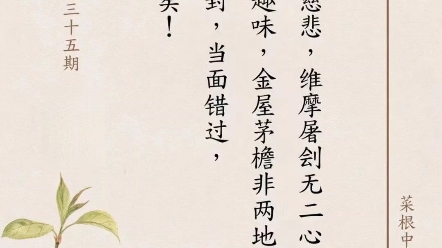 菜根中
慈悲，维摩屠刽无二心
趣味，金屋茅檐非两地
封，当面错过，
矣！
三十五期